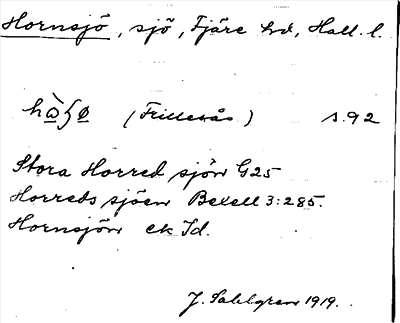 Hornsjö, sjö, Fjäre hd, Hall. l.
(Frillesås) s. 92
Stora Horred sjön G25
Horreds sjöen Bexell 3:285.
Hornsjön ek Id.
J. Sahlgren 1919.